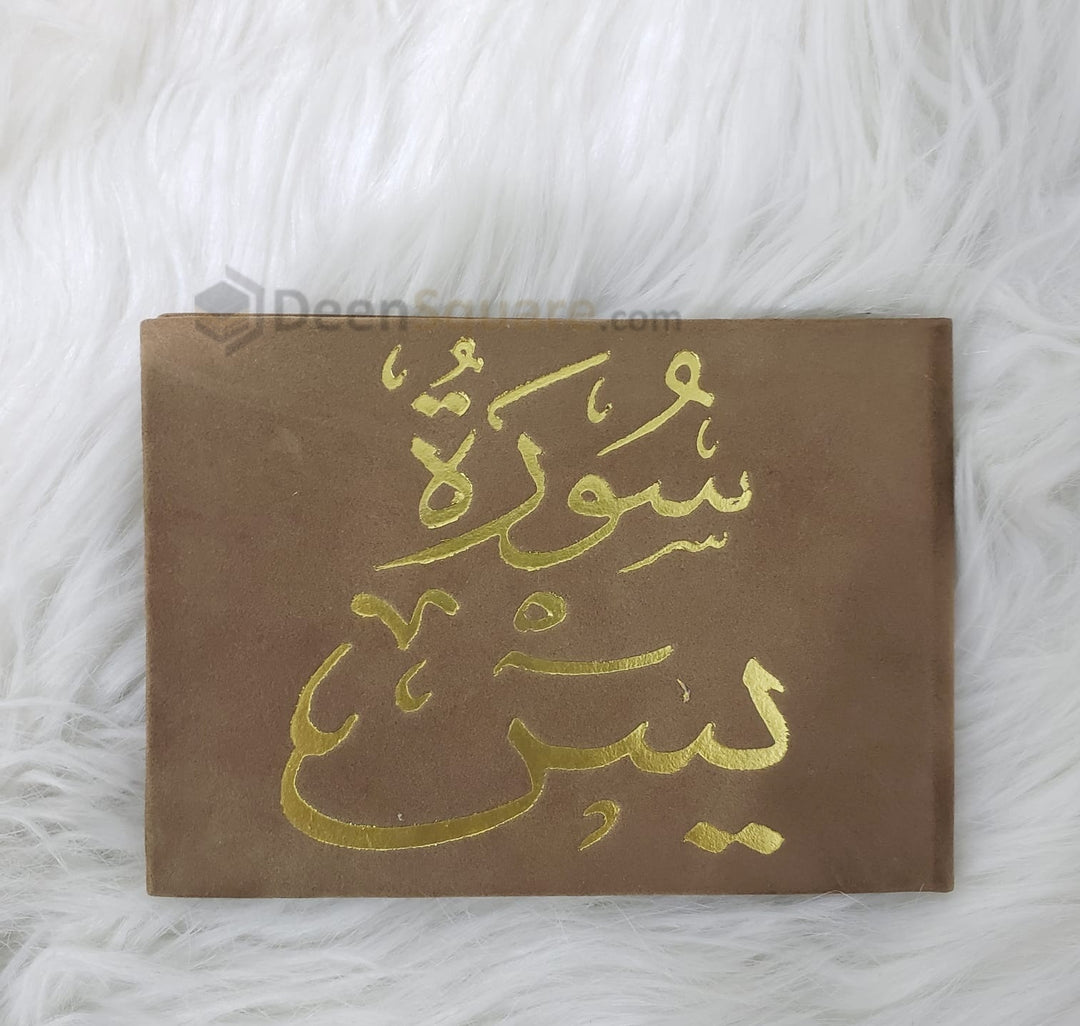 DeenSquare.com
سُورَةُ
يٰسٓ